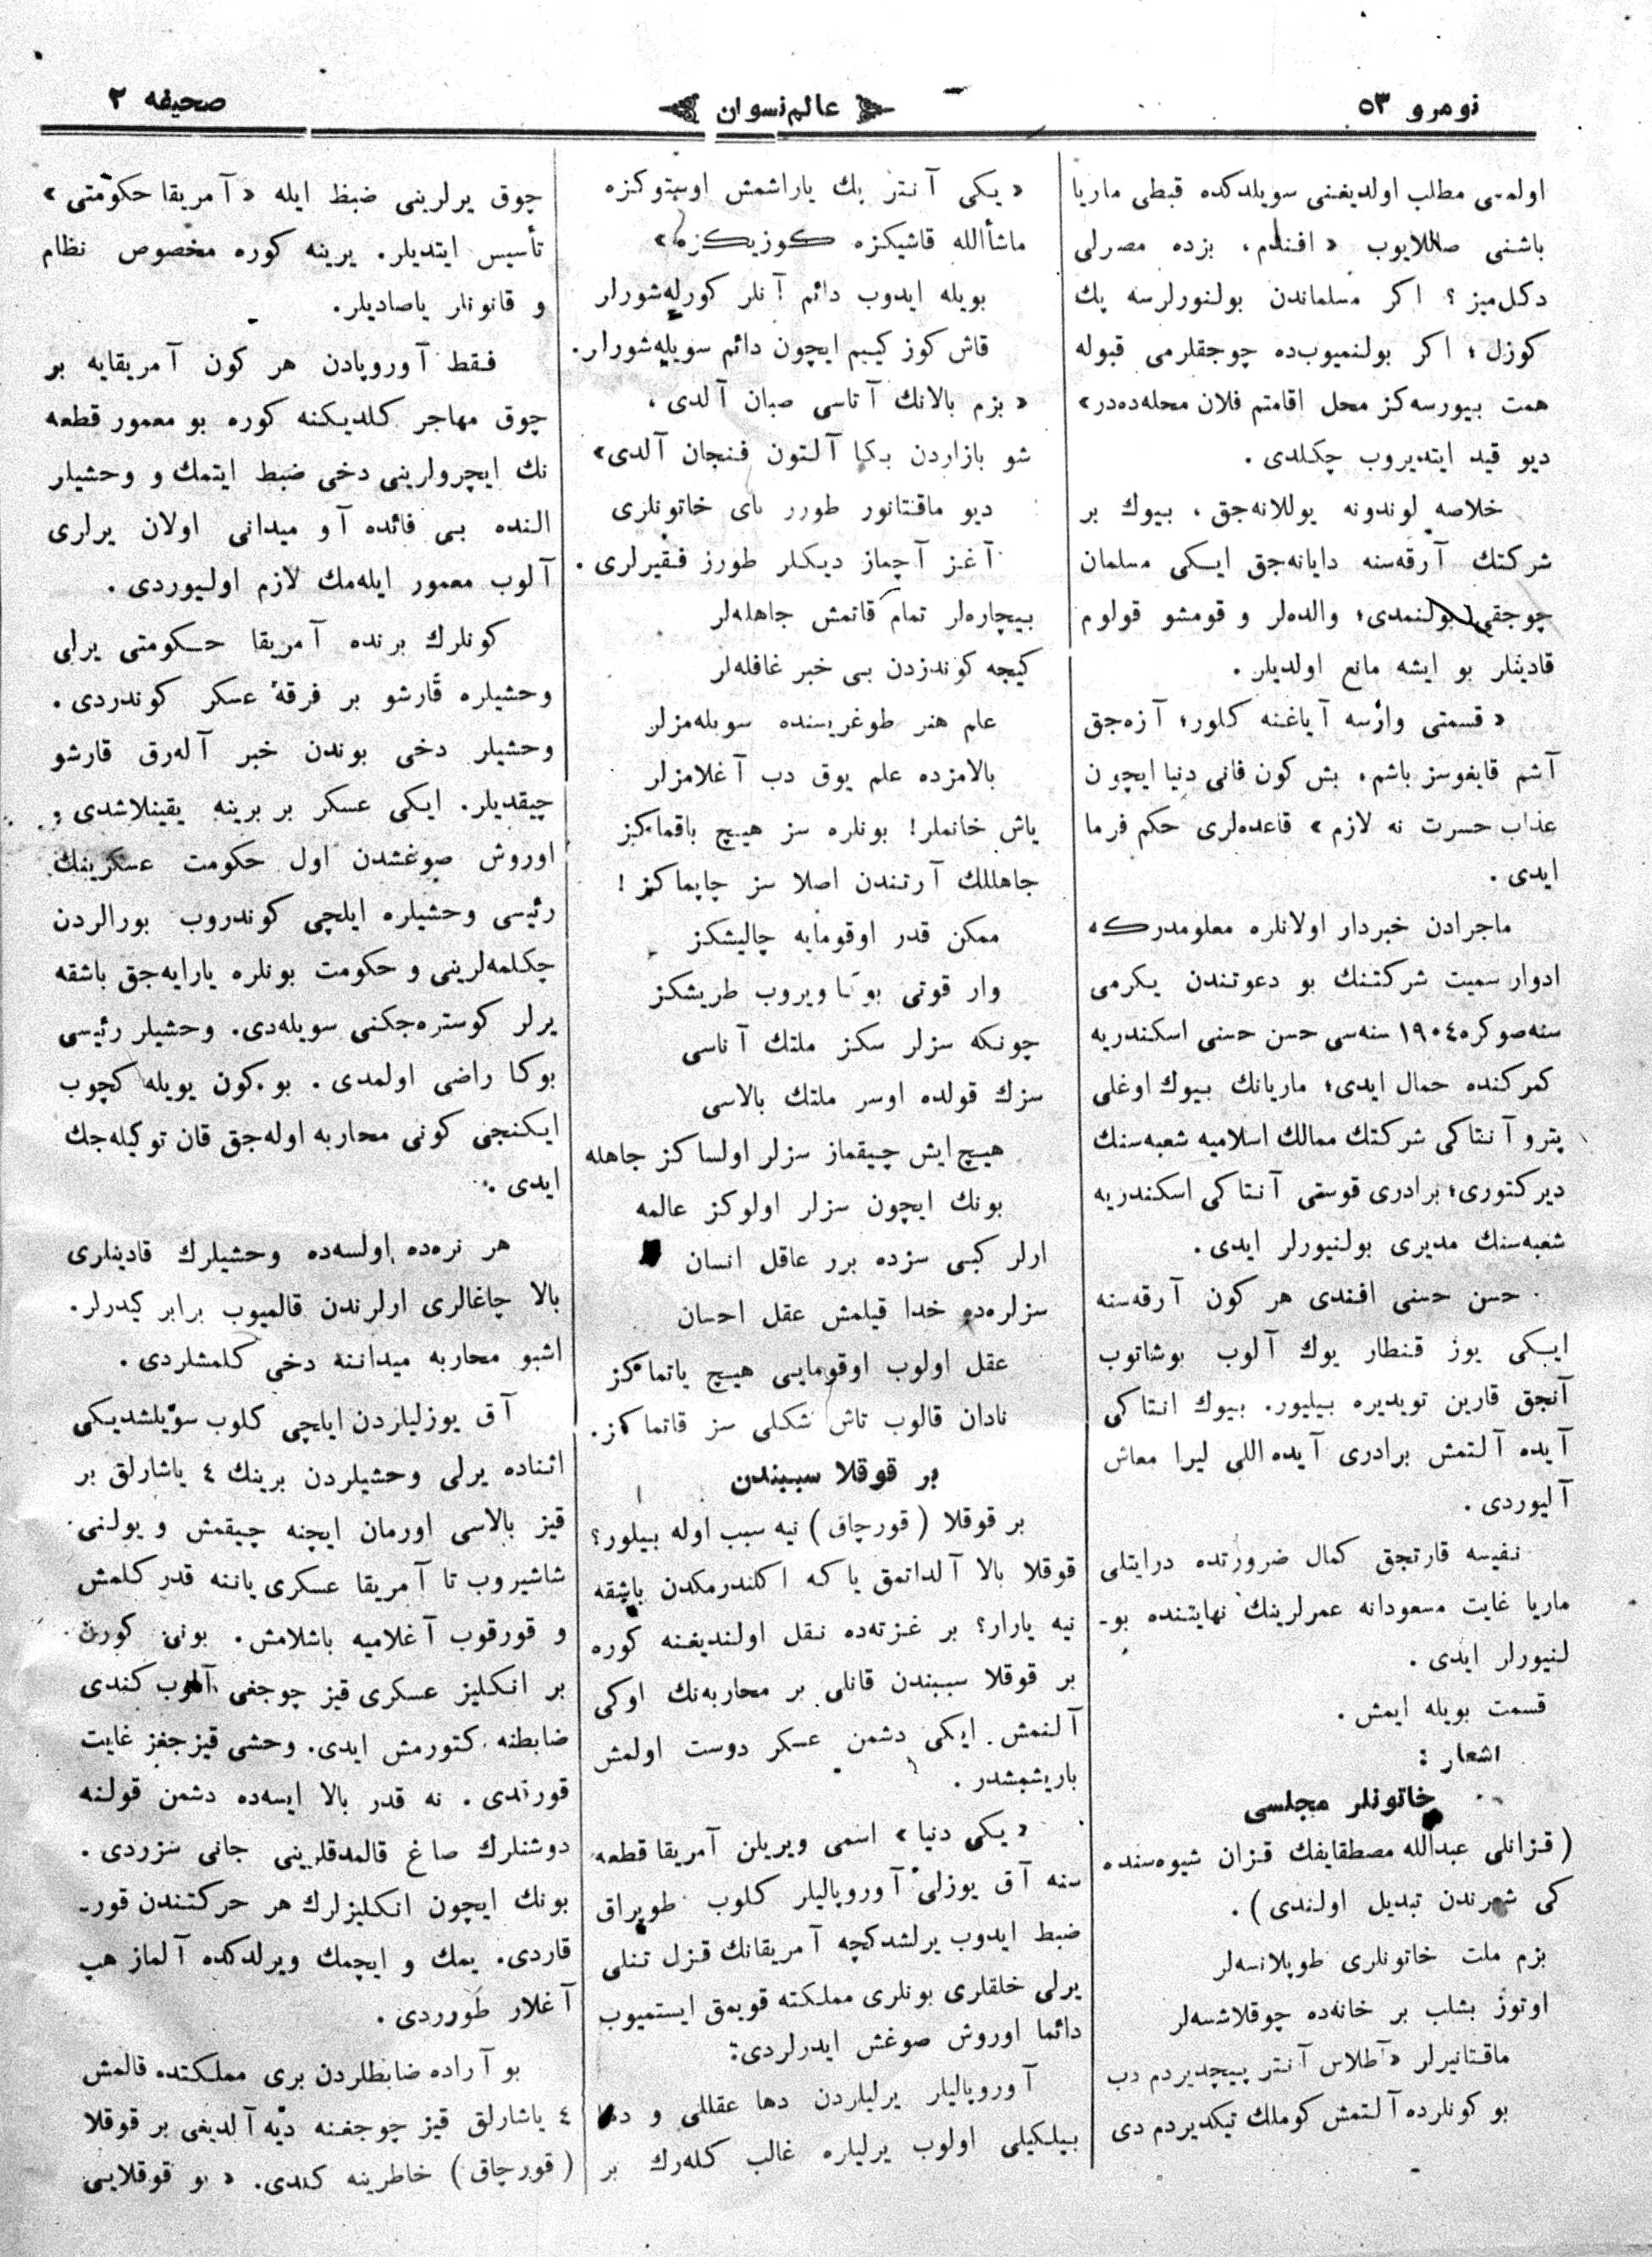 نومرو ٥٣
عالم نسوان
صحيفه ٣
اولمسی مطلب اولديغنی سويلدكده قبطی ماريا
باشنی صاللايوب « افندم، بزده مصرلی
دكل‌ميز ؟ اكر مسلماندن بولنورلرسه پك
كوزل ؛ اكر بولنميوب‌ده چوجقلرمی قبوله
همت بيورسه‌كز محل اقامتم فلان محله‌ده‌در»
ديو قيد ايتديروب چكلدی .
خلاصه لوندونه يوللانه‌جق ، بيوك بر
شركتك آرقه‌سنه دايانه‌جق ايكی مسلمان
چوجقی بولنمدی؛ والده‌لر و قومشو قولوم
قادينلر بو ايشه مانع اولديلر .
« قسمتی وارسه آياغنه كلور؛ آزه‌جق
آشم قايغوسز باشم، بش كون فانی دنيا ايچون
عذاب حسرت نه لازم » قاعده‌لری حكم فرما
ايدی .
ماجرادن خبردار اولانلره معلومدركه
ادوار سميت شركتنك بو دعوتندن يكرمی
سنه‌صوكره ١٩٠٤ سنه‌سی حسن حسنی اسكندريه
كمركنده حمال ايدی؛ ماريانك بيوك اوغلی
پترو آنتاكی شركتك ممالك اسلاميه شعبه‌سنك
ديركتوری؛ برادری قوستی آنتاكی اسكندريه
شعبه‌سنك مديری بولنيورلر ايدی .
حسن حسنی افندی هر كون آرقه‌سنه
ايكی يوز قنطار يوك آلوب بوشاتوب
آنجق قارين تويديره بيليور. بيوك انتاكی
آيده آلتمش برادری آيده اللی ليرا معاش
آليوردی .
نفيسه قارتجق كمال ضرورتده درايتلی
ماريا غايت مسعودانه عمرلرينك نهايتنده بو-
لنيورلر ايدی .
قسمت بويله ايمش .
اشعار :
خاتونلر مجلسی
( قزانلی عبدالله مصطفايفك قزان شيوه‌سنده
كی شعرندن تبديل اولندی ) .
بزم ملت خاتونلری طوپلانسه‌لر
اوتوز بشلب بر خانه‌ده چوقلاشسه‌لر
ماقتانيرلر «آطلاس آنتر پيچديردم دب
بو كونلرده آلتمش كوملك تيكديردم دی
« يكی آنتر پك ياراشمش اوستوكزه
ماشأالله قاشيكزه كوزيكزه »
بويله ايدوب دائم آنلر كورله‌شورلر
قاش كوز كييم ايچون دائم سويله‌شورلر.
« بزم بالانك آتاسی صبان آلدی ،
شو بازاردن بكا آلتون فنجان آلدی»
ديو ماقتانور طورر بای خاتونلری
آغز آچماز ديكلر طورز فقيرلری .
بيچاره‌لر تمام قاتمش جاهله‌لر
كيچه كوندزدن بی خبر غافله‌لر
علم هنر طوغريسنده سويله‌مزلر
بالامزده علم يوق دب آغلامزلر
ياش خانملر! بونلره سز هيچ باقماكز
جاهللك آرتندن اصلا سز چاپماكز !
ممكن قدر اوقومايه چاليشكز
وار قوتی بوكا ويروب طريشكز
چونكه سزلر سكز ملتك آناسی
سزك قولده اوسر ملتك بالاسی
هيچ ايش چيقماز سزلر اولساكز جاهله
بونك ايچون سزلر اولوكز عالمه
ارلر كبی سزده برر عاقل انسان
سزلره‌ده خدا قيلمش عقل احسان
عقل اولوب اوقومايی هيچ ياتماكز
نادان قالوب تاش شكلی سز قاتماكز.
بر قوقلا سببندن
بر قوقلا ( قورچاق ) نيه سبب اوله بيلور؟
قوقلا بالا آلداتمق ياكه اكلندرمكدن باشقه
نيه يارار؟ بر غزته‌ده نقل اولنديغنه كوره
بر قوقلا سببندن قانلی بر محاربه‌نك اوكی
آلنمش. ايكی دشمن عسكر دوست اولمش
باريشمشدر .
« يكی دنيا » اسمی ويريلن آمريقا قطعه
سنه آق يوزلی آوروپاليلر كلوب طوپراق
ضبط ايدوب يرلشدكچه آمريقانك قزل تنلی
يرلی خلقلری بونلری مملكته قويمق ايستميوب
دائما اوروش صوغش ايدرلردی:
آوروپاليلر يرليلردن دها عقللی و دها
بيلكيلی اولوب يرليلره غالب كله‌رك بر
چوق يرلرينی ضبط ايله « آمريقا حكومتی »
تأسيس ايتديلر. يرينه كوره مخصوص نظام
و قانونلر ياصاديلر.
فقط آوروپادن هر كون آمريقايه بر
چوق مهاجر كلديكنه كوره بو معمور قطعه
نك ايچرولرينی دخی ضبط ايتمك و وحشيلر
النده بی فائده آو ميدانی اولان يرلری
آلوب معمور ايله‌مك لازم اوليوردی .
كونلرك برنده آمريقا حكومتی يرلی
وحشيلره قارشو بر فرقهٔ عسكر كوندردی .
وحشيلر دخی بوندن خبر آله‌رق قارشو
چيقديلر. ايكی عسكر بر برينه يقينلاشدی و
اوروش صوغشدن اول حكومت عسكرينك
رئيسی وحشيلره ايلچی كوندروب بورالردن
چكلمه‌لرينی و حكومت بونلره يارايه‌جق باشقه
يرلر كوستره‌جكنی سويله‌دی. وحشيلر رئيسی
بوكا راضی اولمدی . بو كون بويله كچوب
ايكنجی كونی محاربه اوله‌جق قان توكيله‌جك
ايدی .
هر نره‌ده اولسه‌ده وحشيلرك قادينلری
بالا چاغالری ارلرندن قالميوب برابر كيدرلر.
اشبو محاربه ميداننه دخی كلمشلردی .
آق يوزليلردن ايلچی كلوب سويلشديكی
اثناده يرلی وحشيلردن برينك ٤ ياشارلق بر
قيز بالاسی اورمان ايچنه چيقمش و يولنی
شاشيروب تا آمريقا عسكری ياننه قدر كلمش
و قورقوب آغلاميه باشلامش. بونی كورن
بر انكليز عسكری قيز چوجغی آلوب كندی
ضابطنه كتورمش ايدی. وحشی قيزجغز غايت
قورقدی . نه قدر بالا ايسه‌ده دشمن قولنه
دوشنلرك صاغ قالمدقلرينی جانی سزردی .
بونك ايچون انكليزلرك هر حركتندن قور-
قاردی. يمك و ايچمك ويرلدكده آلماز هپ
آغلار طوردی .
بو آراده ضابطلردن بری مملكتده قالمش
٤ ياشارلق قيز چوجغنه ديه آلديغی بر قوقلا
( قورچاق ) خاطرينه كلدی. « بو قوقلايی